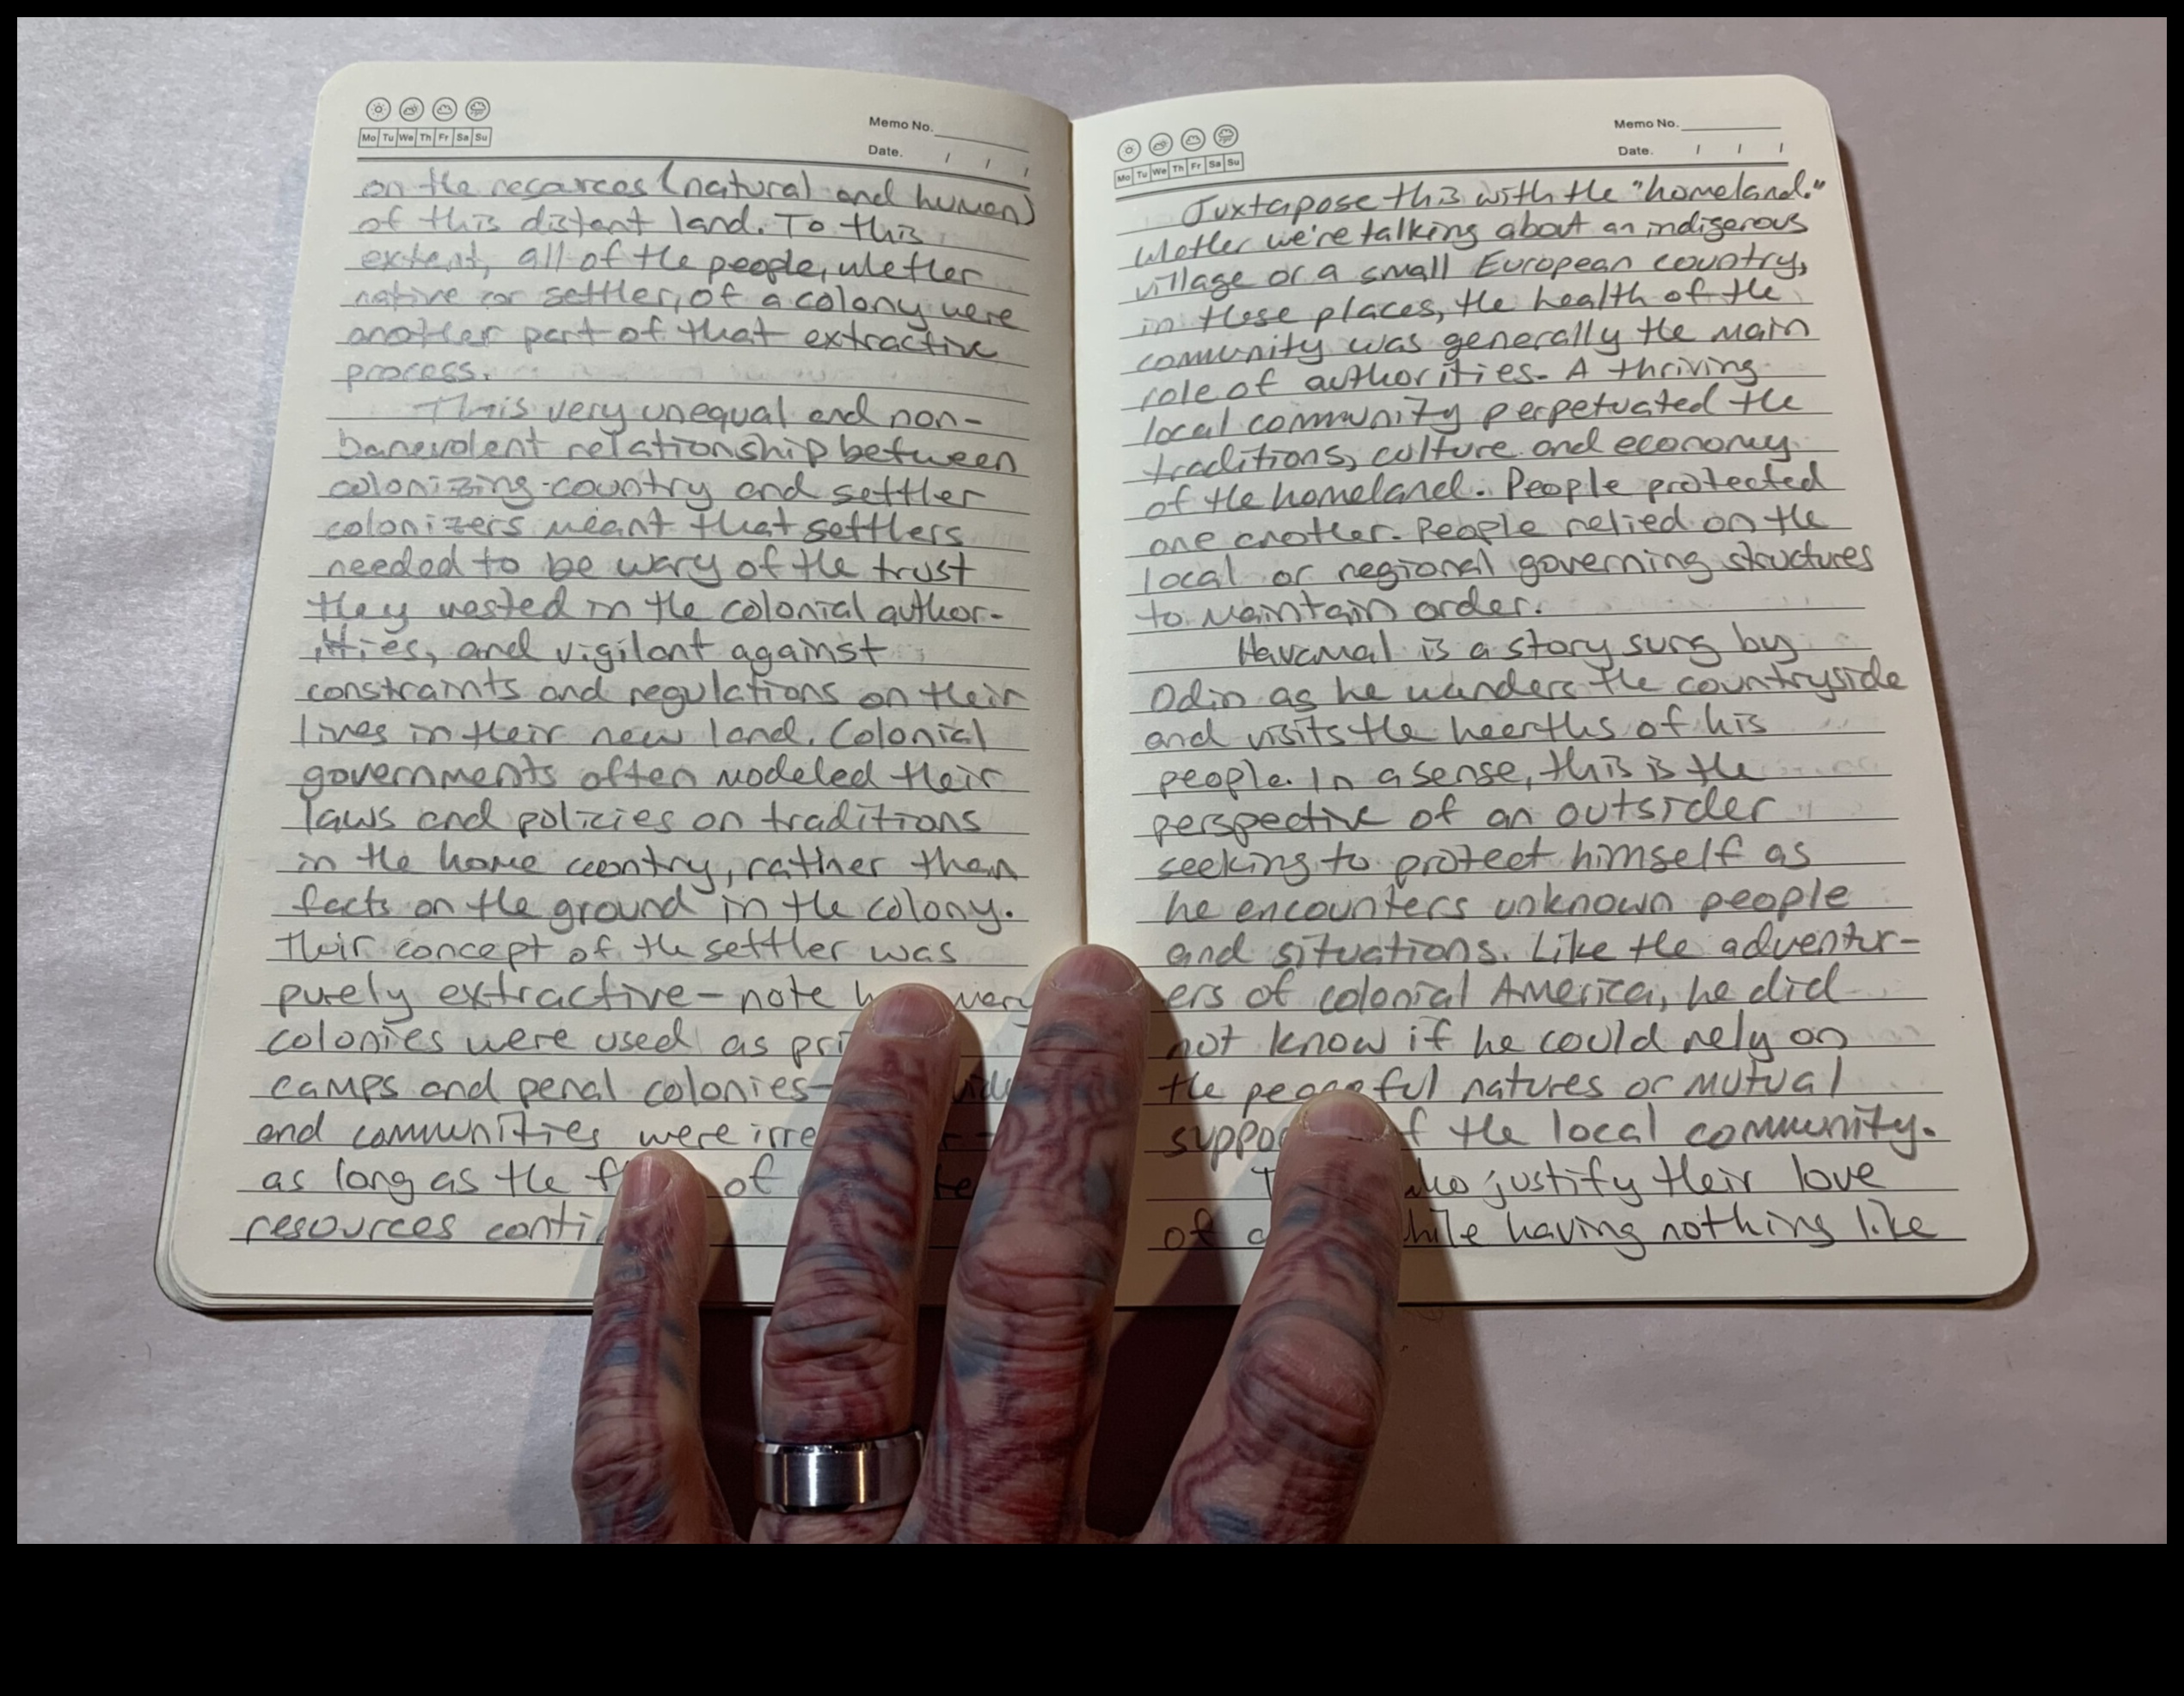 Mo Tu We Th Fr Sa Su
Memo No.
Date. / / /
on the resources (natural and human)
of this distant land. To this
extent, all of the people, whether
native or settler, of a colony were
another part of that extractive
process.
This very unequal and non-
benevolent relationship between
colonizing country and settler
colonizers meant that settlers
needed to be wary of the trust
they vested in the colonial author-
ities, and vigilant against
constraints and regulations on their
lives in their new land. Colonial
governments often modeled their
laws and policies on traditions
in the home country, rather than
facts on the ground in the colony.
Their concept of the settler was
purely extractive - note
colonies were used as
camps and penal colonies-
and communities were
as long as the of
resources
Mo Tu We Th Fr Sa Su
Memo No.
Date. / / /
Juxtapose this with the "homeland."
Whether we're talking about an indigenous
village or a small European country,
in these places, the health of the
community was generally the main
role of authorities. A thriving
local community perpetuated the
traditions, culture and economy
of the homeland. People protected
one another. People relied on the
local or regional governing structures
to maintain order.
Havamal is a story sung by
Odin as he wanders the countryside
and visits the hearths of his
people. In a sense, this is the
perspective of an outsider
seeking to protect himself as
he encounters unknown people
and situations. Like the adventur-
ers of colonial America, he did
not know if he could rely on
the peaceful natures or mutual
of the local community.
who justify their love
of while having nothing like